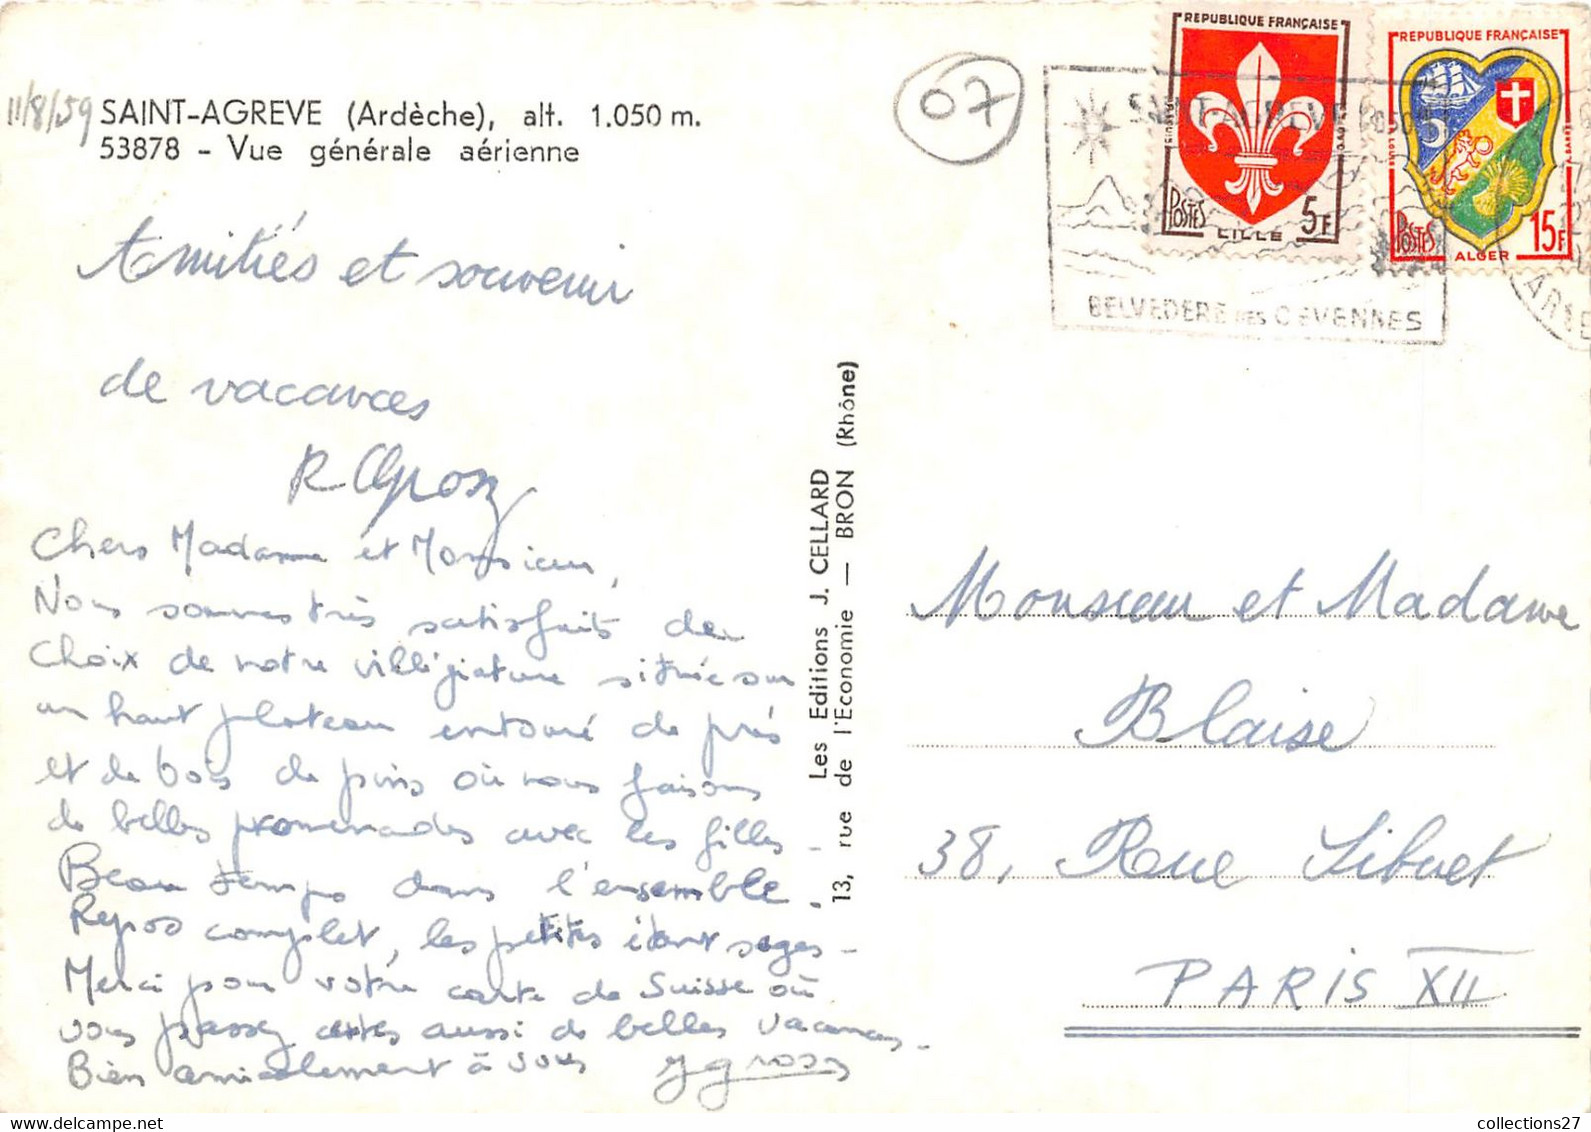 11/8/59
SAINT-AGREVE (Ardèche), alt. 1.050 m.
53878 - Vue générale aérienne
Amitiés et souvenir
de vacances
Chers Madame et Monsieur,
Nous sommes très satisfaits du
choix de notre villégiature située sur
un haut plateau entouré de prés
et de bois de pins où nous faisons
de belles promenades avec les filles -
Beau temps dans l'ensemble -
Repos complet, les petites étant sages -
Merci pour votre carte de Suisse où
vous passez certes aussi de belles vacances -
Bien amicalement à vous
Les Editions J. CELLARD
13, rue de l'Economie — BRON (Rhône)
07
SAINT-AGREVE 1050 M
BELVEDERE DES CEVENNES
REPUBLIQUE FRANÇAISE
POSTES
5F
LILLE
REPUBLIQUE FRANÇAISE
POSTES
15F
ALGER
Monsieur et Madame
Blaise
38, Rue Sibuet
PARIS XII
collections27